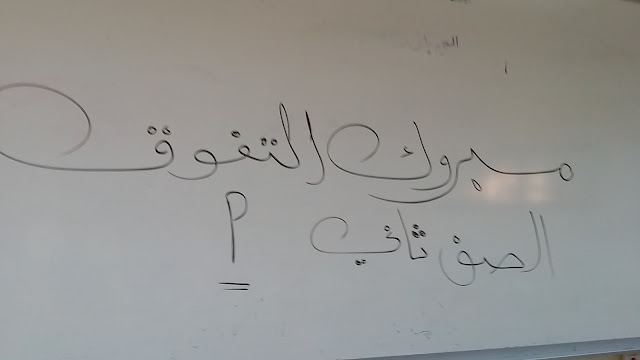 مبروك التفوق
الصف ثاني م